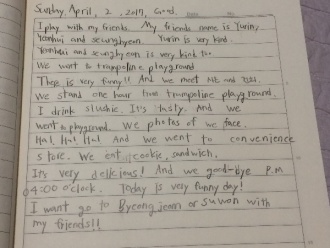 Sunday April, 2, 2017, Good.
I play with my friends. My friends name is Yurin,
Yoonhui and seunghyeon. Yurin is very kind.
Yoonhui and seunghyeon is very kind too.
We want to trampoline playground
There is very funny!! And we meet and
We stand one hour two trampoline playground.
I drink slushie. It's tasty. And we
went to playground. We photos of we face.
Ha! Ha! Ha! And we went to convenience
store. We eat cookie, sandwich.
It's very delicious! And we good-bye P.M
04:00 o'clock. Today is very funny day!
I want go to Byeongjeom or Suwon with
my friends!!